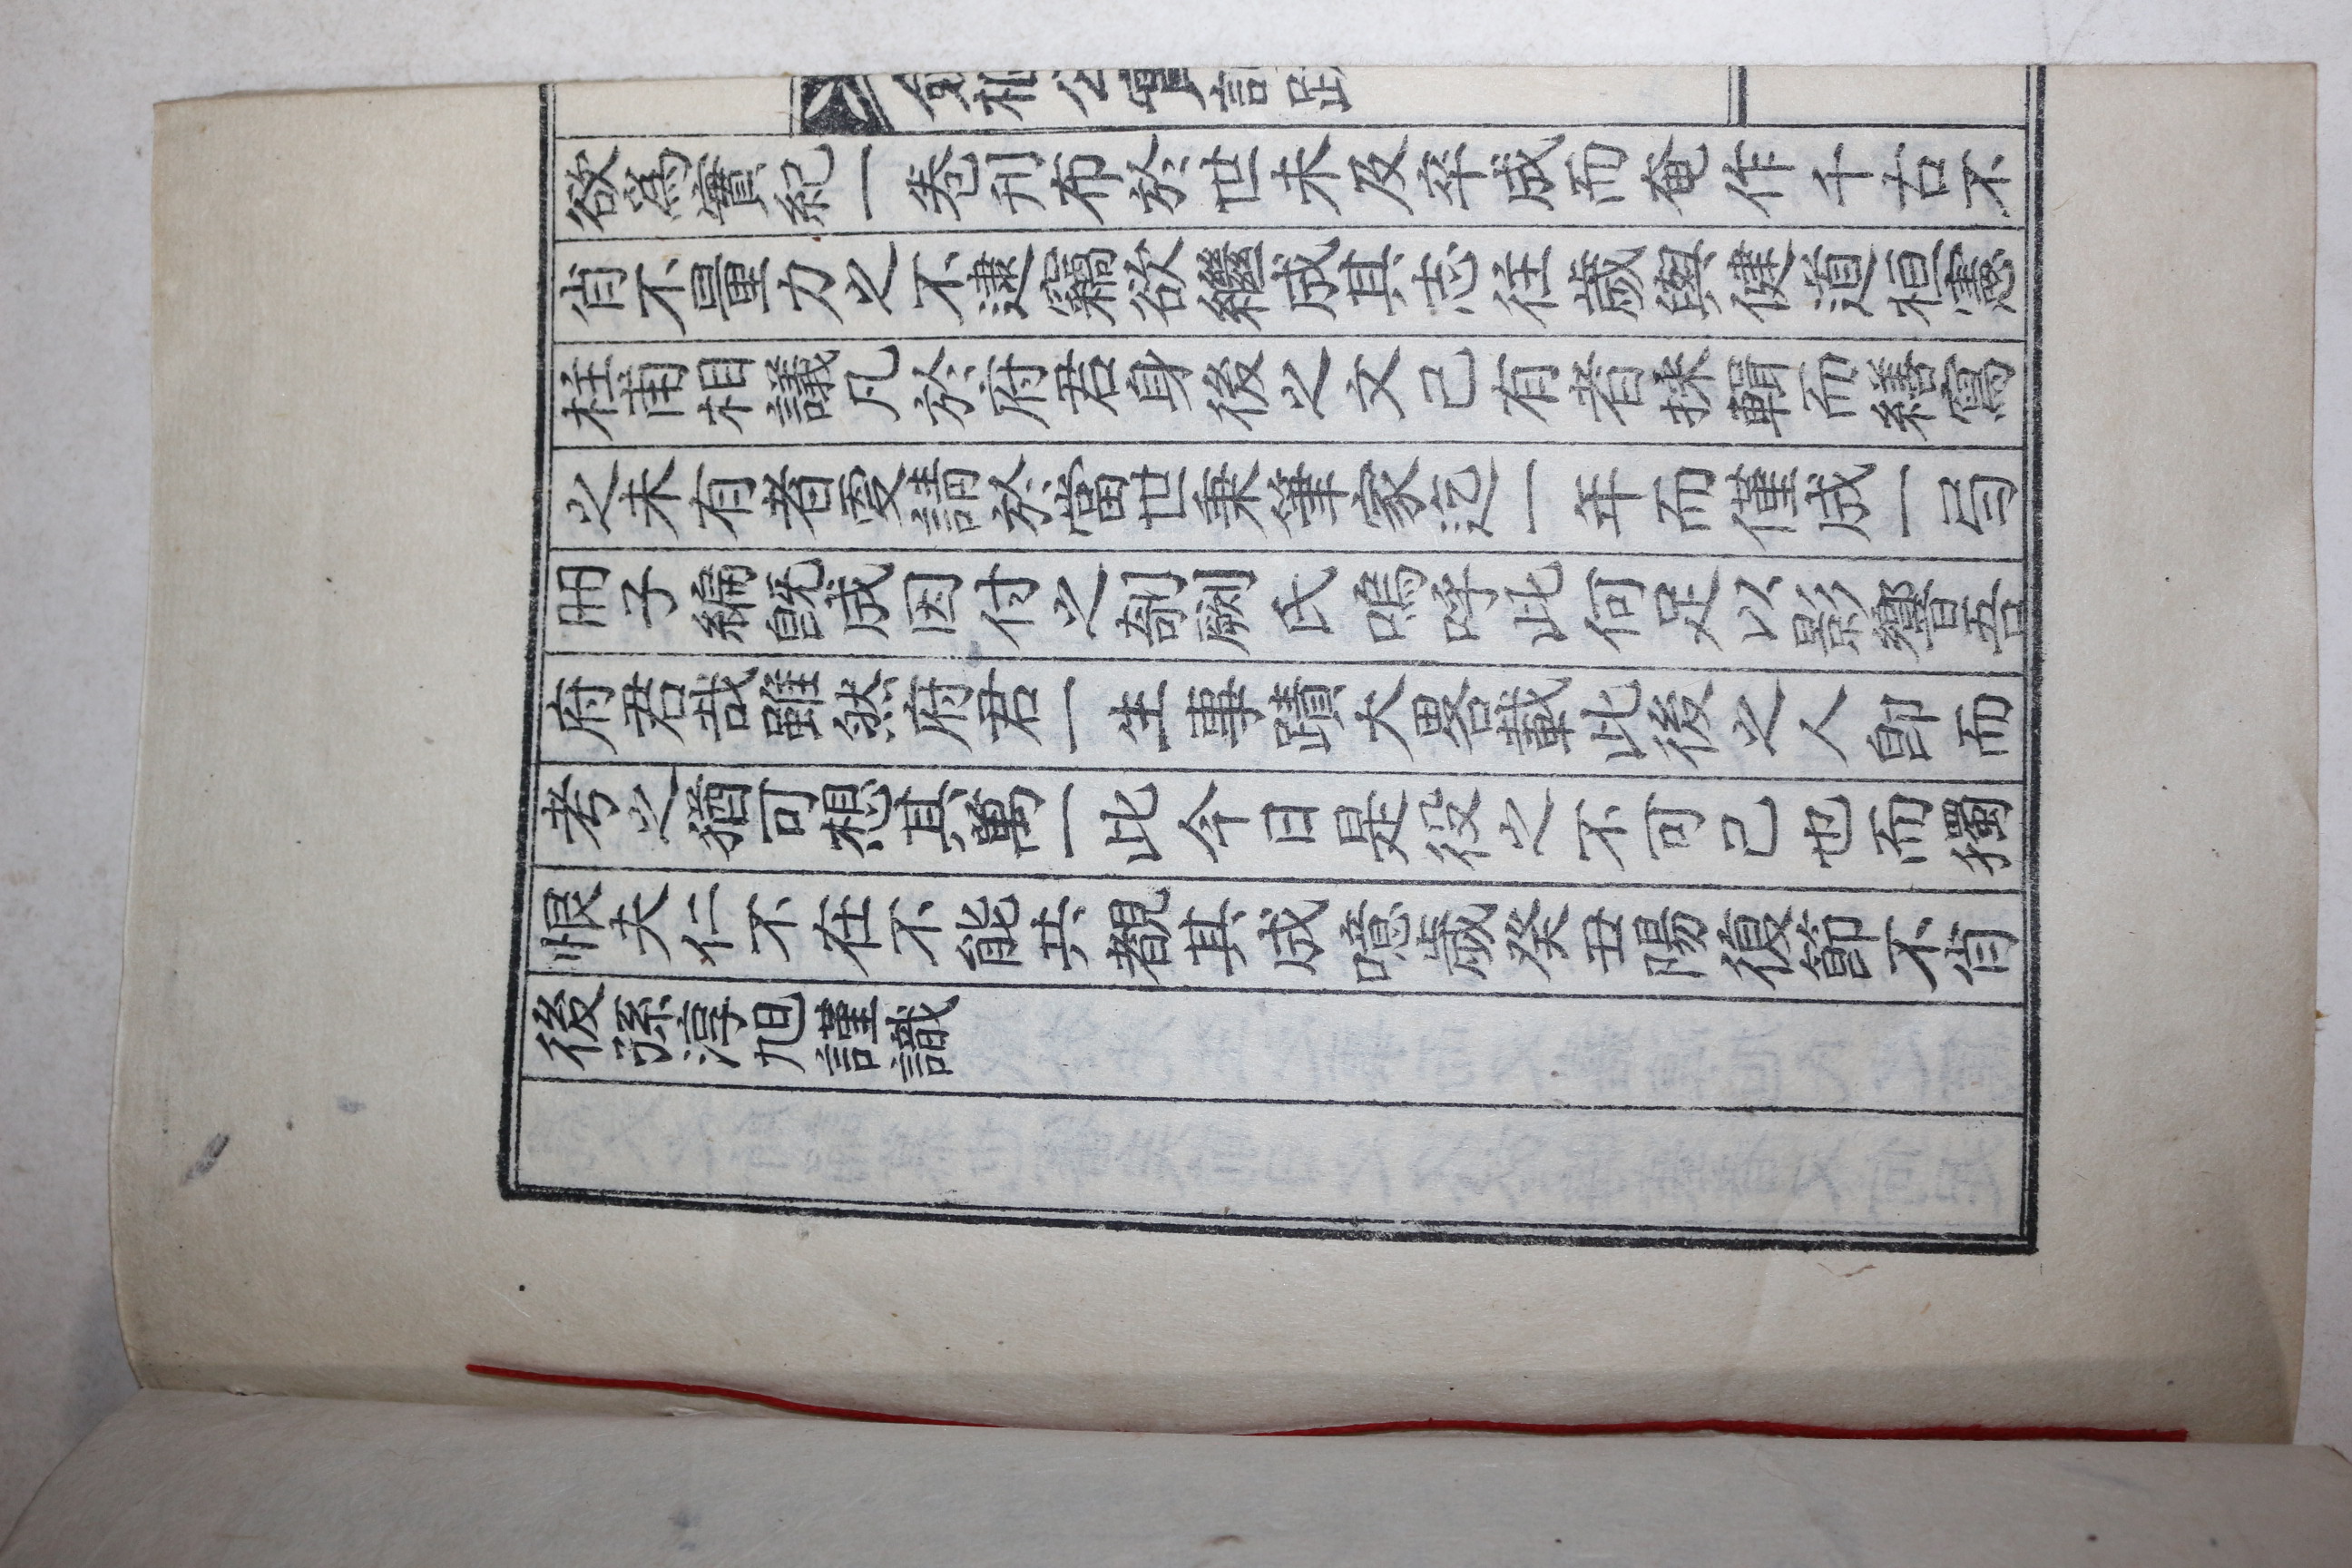 欲爲實紀一卷刊布於世未及卒成而奄作千古不
肖不量力之不逮竊欲繼成其志往歲與健道桓憲
柱南相議凡於府君身後之文已有者採輯而繕寫
之未有者更請於當世秉筆家迄一年而僅成一弓
冊子編旣成因付之剞劂氏嗚呼此何足以影響吾
府君哉雖然府君一生事蹟大畧載此後之人卽而
考之猶可想其萬一此今日是役之不可已也而獨
恨夫仁不在不能共覩其成噫歲癸丑陽復節不肖
後孫淳旭謹識